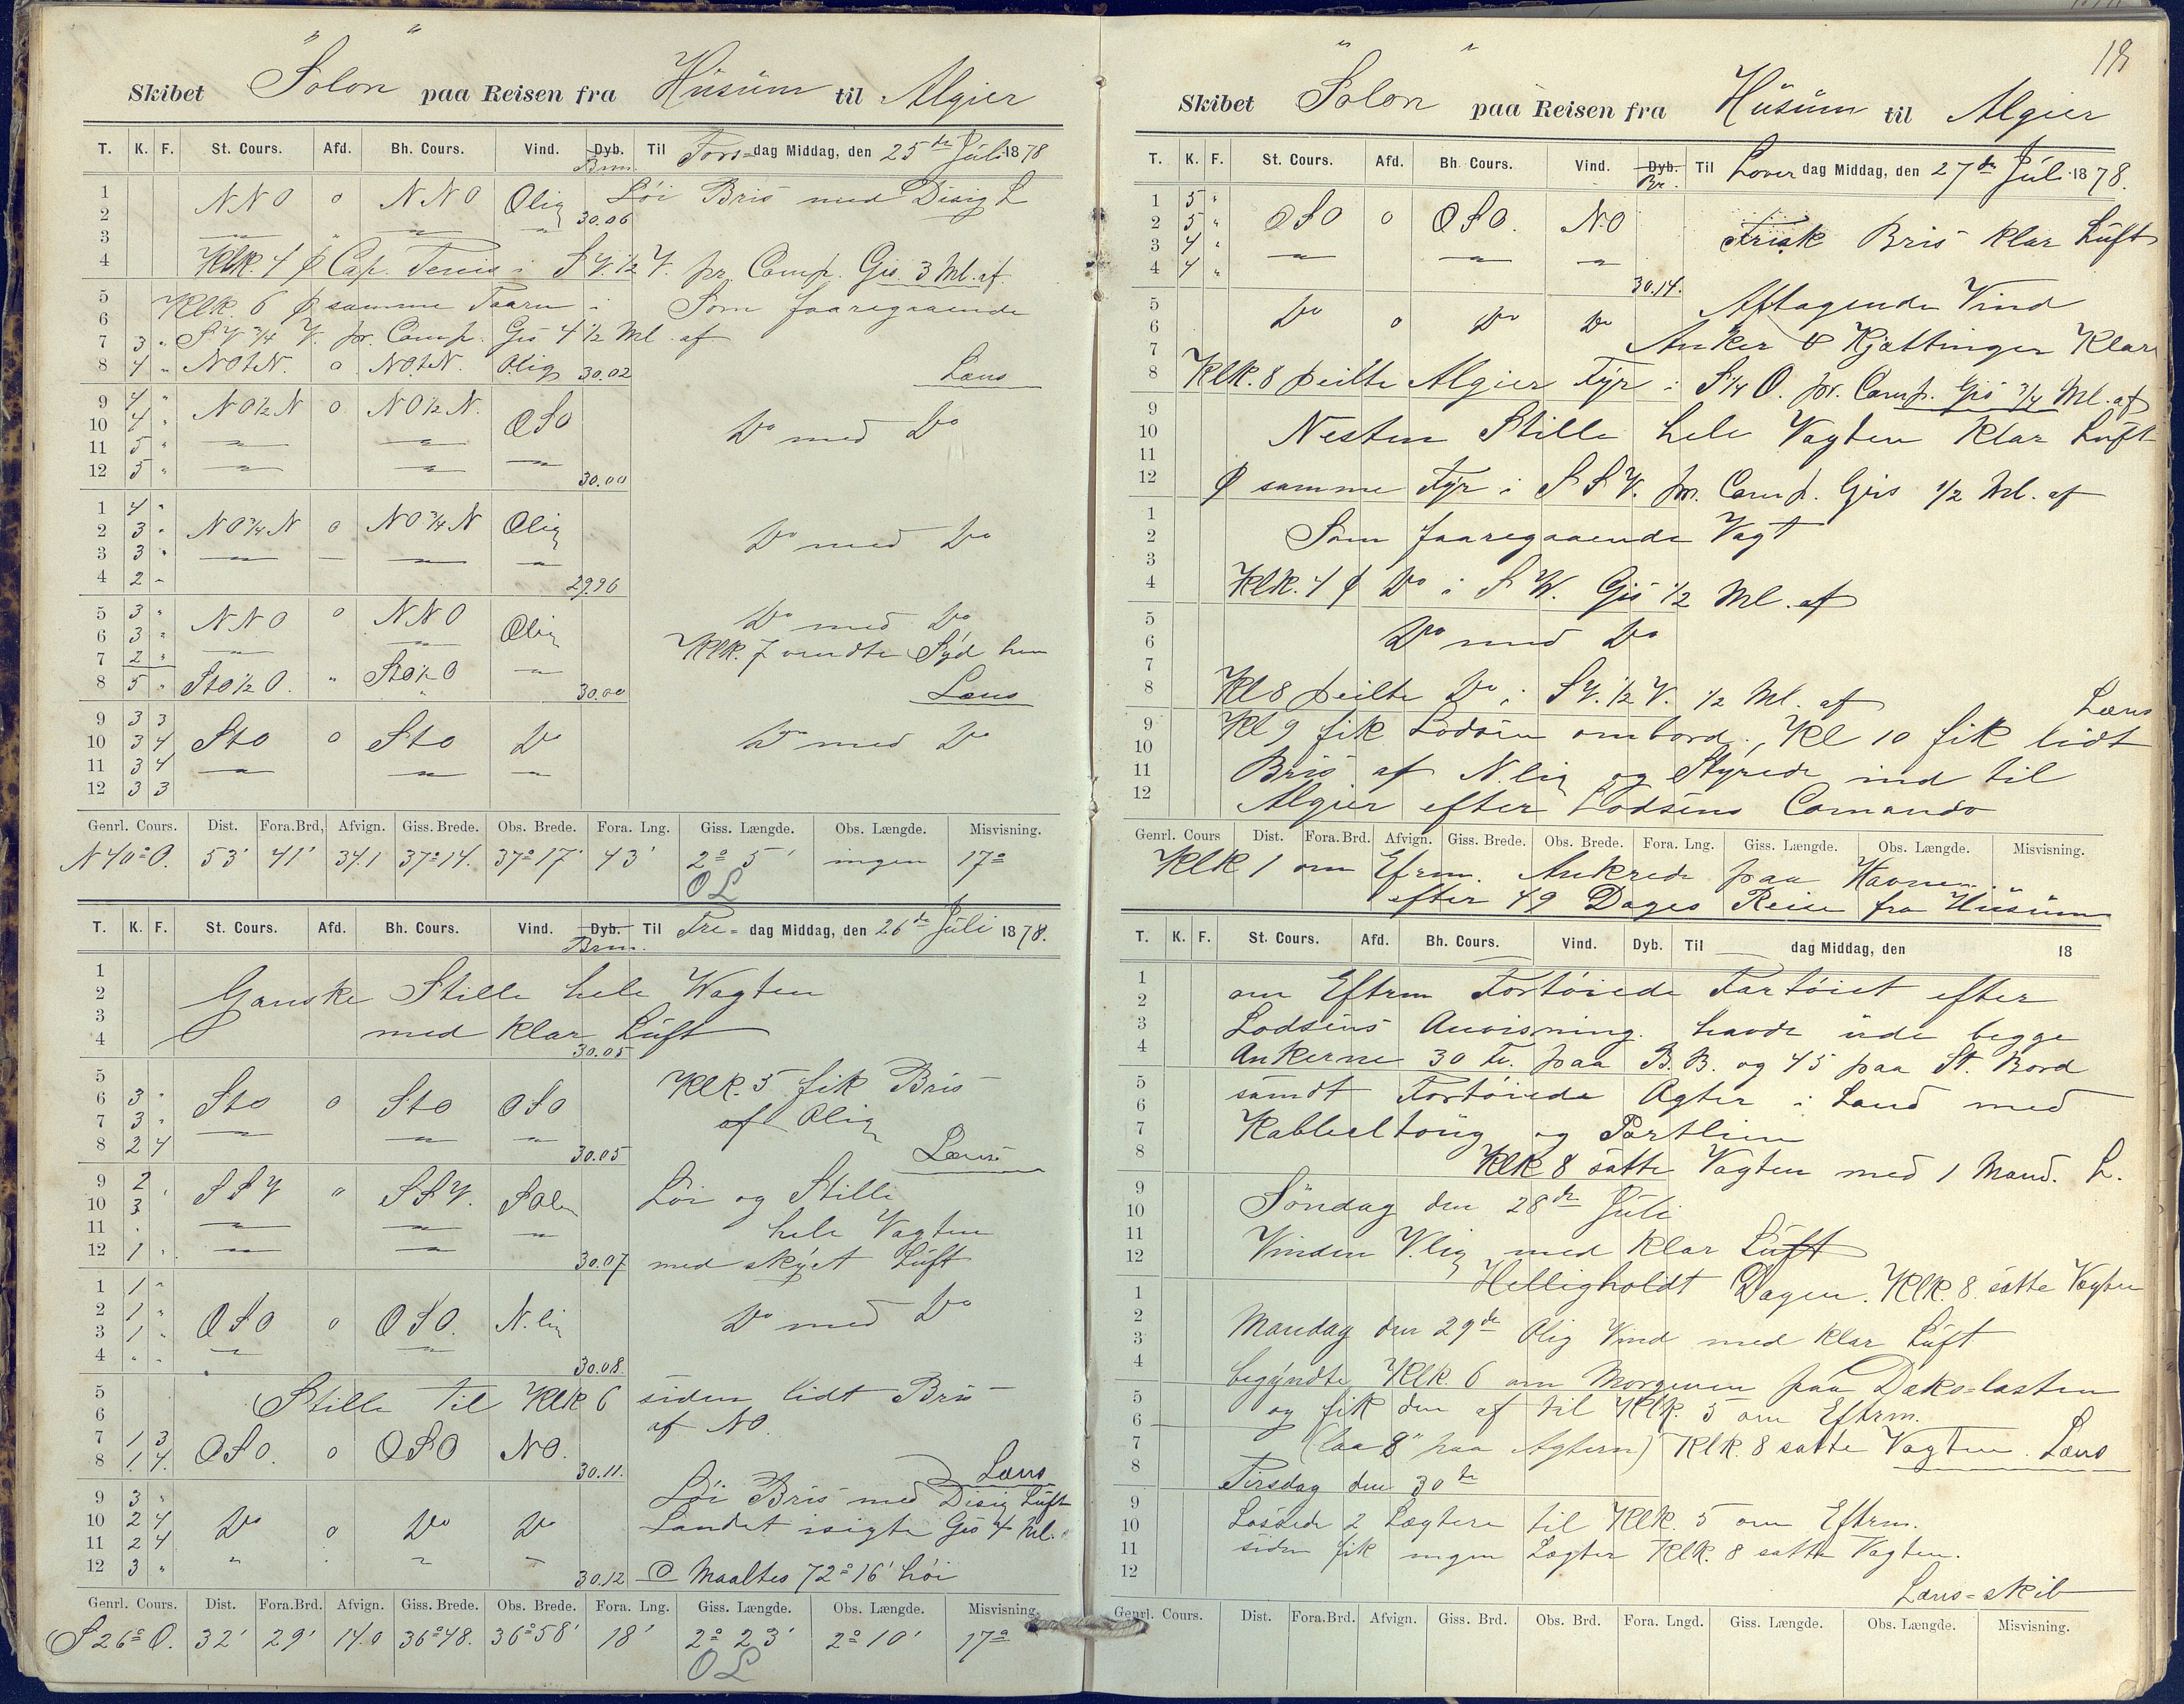 Skibet "Solon" paa Reisen fra Hüsüm til Algier
T. K. F. St. Cours. Afd. Bh. Cours. Vind. Dyb. Til Tors=dag Middag, den 25de Júli 1878
Brm.
1 NNO o NNO Olig Löi Bris med Disig L
2 30.06
3
4 Klk. 4 φ Cap. Tenis i S V. 1/2 V. pr. Comp. Gis 3 Ml. af
5 Klk. 6 φ samme Taarn i Som faaregaaende
6 S V 3/4 V. pr. Comp. Gis 4 1/2 Ml. af
7 3 "
8 4 " NOtN. o NOtN. Olig 30.02 Læns
9 4 " NO 1/2 N o NO 1/2 N.
10 4 " OSO Do med Do
11 5 "
12 5 " 30.00
1 4 "
2 3 " NO 3/4 N o NO 3/4 N Olig Do med Do
3 3 "
4 2 " 29.96
5 3 " NNO o NNO Do med Do
6 3 " Olig
7 2 " Klk. 7 vendte Syd hen
8 5 " StO 1/2 O. " StO 1/2 O 30.00 Læns
9 3 3
10 3 4 StO o StO Do Do med Do
11 3 4
12 3 3
Genrl. Cours. Dist. Fora.Brd, Afvign. Giss. Brede. Obs. Brede. Fora. Lng. Giss. Længde. Obs. Længde. Misvisning.
N 40° O. 53' 41' 34.1 37° 14. 37° 17' 43' 2° 5' ingen 17°
O L
T. K. F. St. Cours. Afd. Bh. Cours. Vind. Dyb. Til Fre= dag Middag, den 26de Júli 1878.
Brm.
1
2 Ganske Stille hele Wagten
3
4 med klar Lúft
30.05
5 Klk. 5 fik Bris
6 3 " StO o StO OSO
7 3 " af Olig
8 2 4 30.05 Læns
9 2 SSV " SSV. Löi og Stille
10 3
11 " hele Vagten
12 1 " 30.07 med skyet Lúft
1 1 "
2 1 " OSO o OSO. N.lig Do med Do
3 1 "
4 " " 30.08
5 Stille til Klk 6 siden lidt Bris
6 af NO.
7 1 3 OSO. o OSO NO.
8 1 4. 30.11. Læns
9 3 " Löi Bris med Disig Lúft
10 2 4 Do o Do Do Landet isigte Gis 4 Ml.
11 2 4
12 3 " 30.12 Maaltes 72° 16' höi
Genrl. Cours. Dist. Fora.Brd. Afvign. Giss. Brede. Obs. Brede. Fora. Lng. Giss. Længde. Obs. Længde. Misvisning.
S 26° O. 32' 29' 14.0 36° 48. 36° 58' 18' 2° 23' 2° 10' 17°
O L
Skibet "Solon" paa Reisen fra Hüsüm til Algier
T. K. F. St. Cours. Afd. Bh. Cours. Vind. Dyb. Til Löver dag Middag, den 27de Júli 1878.
Br.
1 5 "
2 5 " OSO o OSO. NO Frisk Bris klar Lúft
3 4 "
4 4 " 30.14.
5 Do o Do Do Aftagende Vind
6
7 Anker & Kjættinger Klare
8 Klk. 8 peilte Algier Fyr i S 1/4 O. pr. Comp. Gis 3/4 Ml. af
9
10 Nesten Stille hele Vagten klar Lúft
11
12 φ samme Fyr i SSV. pr. Comp. Gis 1/2 Ml. af
1
2 Som faaregaaende Vagt
3
4 Klk. 4 φ Do i S W. Gis 1/2 Ml. af
5
6 Do med Do
7
8 Kl 8 peilte Do i S V. 1/2 V. 1/2 Ml. af Læns
9 Kl 9 fik Lodsen ombord. Kl 10 fik lidt
10
11 Bris af N.lig og Styrede ind til
12 Algier efter Lodsens Comando
Genrl. Cours Dist. Fora.Brd. Afvign. Giss. Brede. Obs. Brede. Fora. Lng. Giss. Længde. Obs. Længde. Misvisning.
Klk 1 om Efrm. Ankrede paa Havnen.
efter 49 Dages Reise fra Hüsüm
T. K. F. St. Cours. Afd. Bh. Cours. Vind. Dyb. Til dag Middag, den 18
1 om Eftrm Fortöiede Fartöiet efter
2
3 Lodsens Anvisning. havde úde begge
4 Ankerne 30 fv. paa B.B. og 45 paa St. Bord
5
6 samdt Fortöiede Agter i Land med
7 Kabbeltoúg og Portlien
8 Klk 8 satte Vagten med 1 Mand. L.
9
10 Söndag den 28de Júli
11
12 Vinden V.lig med klar Lúft
1 Helligholdt Dagen. Klk. 8. satte Vagten
2
3 Mandag den 29de Olig Vind med klar Lúft
4 begyndte Klk. 6 om Morgenen paa Dæks=lasten
5 og fik den af til Klk. 5 om Eftrm.
6
7 (laa 8" paa Agtern) Klk. 8 satte Vagten. Læns
8 Tirsdag den 30de
9
10 Lossede 2 Lægtere til Klk. 5 om Eftrm.
11 siden fik ingen Lægter Klk. 8 satte Vagten.
12
Læns=skib
Genrl. Cours. Dist. Fora.Brd. Afvign. Giss. Brd. Obs. Brd. Fora. Lngd. Giss. Længde. Obs. Længde. Misvisning.